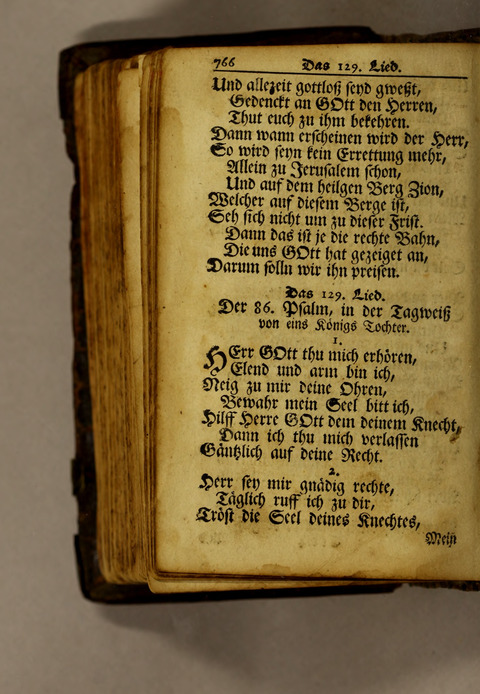 766 Das 129. Lied.
Und allezeit gottloß seyd gweßt,
Gedenckt an GOtt den Herren,
Thut euch zu ihm bekehren.
Dann wann erscheinen wird der Herr,
So wird seyn kein Errettung mehr,
Allein zu Jerusalem schon,
Und auf dem heilgen Berg Zion,
Welcher auf diesem Berge ist,
Seh sich nicht um zu dieser Frist.
Dann das ist je die rechte Bahn,
Die uns GOtt hat gezeiget an,
Darum solln wir ihn preisen.
Das 129. Lied.
Der 86. Psalm, in der Tagweiß
von eins Königs Tochter.
1.
HErr GOtt thu mich erhören,
Elend und arm bin ich,
Neig zu mir deine Ohren,
Bewahr mein Seel bitt ich,
Hilff Herre GOtt dem deinem Knecht,
Dann ich thu mich verlassen
Gäntzlich auf deine Recht.
2.
Herr sey mir gnädig rechte,
Täglich ruff ich zu dir,
Tröst die Seel deines Knechtes,
Mein